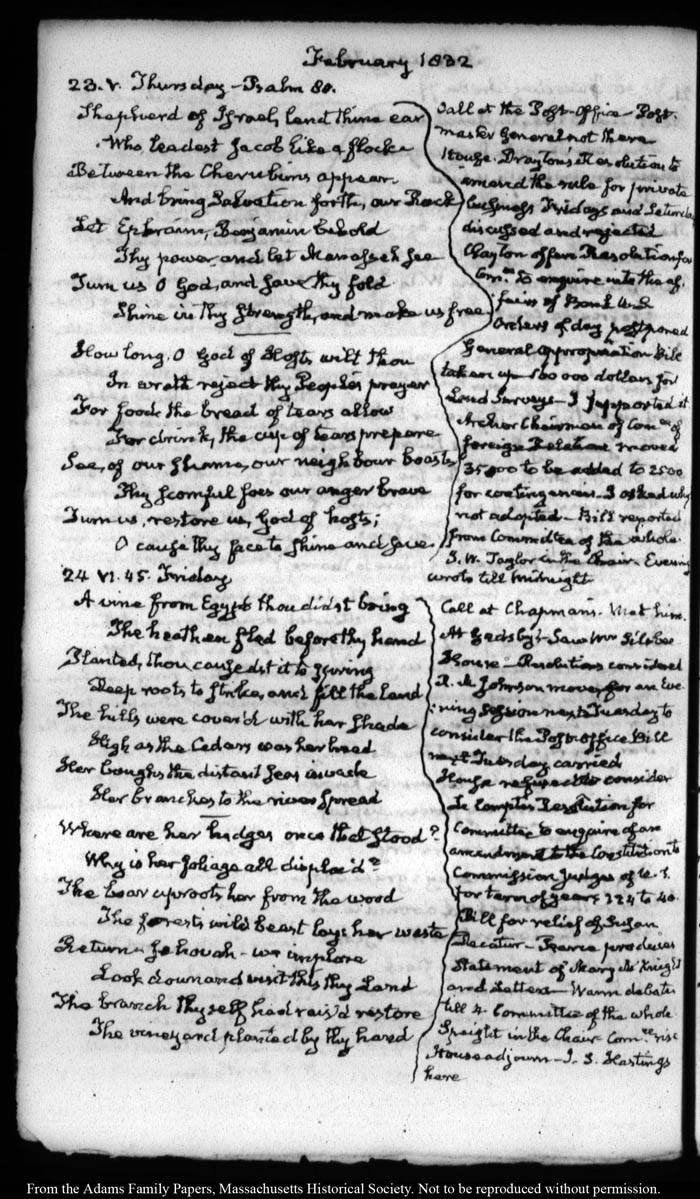 February 1832
23. V. Thursday – Psalm 80.
Shepherd of Israel, lend thine ear
Who leadest Jacob like a flock
Between the Cherubims appear
And bring Salvation forth, our Rock
Let Ephraim, Benjamin behold
Thy power and let Manasseh see
Turn us O God, and save thy fold
Shine in thy strength, and make us free
How long, O God of Hosts wilt thou
In wrath reject thy People's prayer
For food the bread of tears allow
For drink, the cup of tears prepare
See, of our shame, our neighbour boasts
Thy scornful foes our anger brave
Turn us, restore us, God of hosts;
O cause thy face to shine and save
Call at the Post-Office – Post-
master General not there
House. Drayton's Resolution to
amend the rule for private
business Fridays and Saturdays
discussed and rejected
Clayton offers Resolution for
Com.ee to enquire into the af-
fairs of Bank U.S
Orders of day postponed
General appropriation Bill
taken up – 80 000 dollars for
Land Surveys – I supported it
Archer Chairman of Com.ee of
foreign Relations moved
35000 to be added to 2500
for contingencies. I asked why
not adopted – Bill reported
from Committee of the whole.
J. W. Taylor in the Chair. Evening
wrote till midnight
24 VI. 45. Friday
A vine from Egypt thou didst bring
The heathen fled before thy hand
Planted, thou causedst it to spring
Deep roots to strike, and fill the Land
The hills were cover'd with her shade
High as the Cedars was her head
Her boughs the distant seas invade
Her branches to the river spread
Where are her hedges once that stood?
Why is her foliage all displac'd?
The boar uproots her from the wood
The forests wild beast lays her waste
Return Jehovah – we implore
Look down and visit this thy Land
The branch thyself had rais'd restore
The vineyard planted by thy hand
Call at Chapman's. Met him.
At Gadsby's – Saw Mr Silsbee
House – Resolutions considered
R. M. Johnson moves for an Eve-
ning session next Tuesday to
consider the Post-office Bill
next Tuesday carried
House refused to consider
Resolution for
Committee to enquire of an
amendment to the Constitution to
Commission Judges of U. S.
for term of years 124 to 40.
Bill for relief of Susan
Decatur – Pearce produces
Statement of Mary McKnight
and Letters – Warm debate
till 4. Committee of the whole
Speight in the Chair Com.ee rise
House adjourn – J. S. Hastings
here
From the Adams Family Papers, Massachusetts Historical Society. Not to be reproduced without permission.